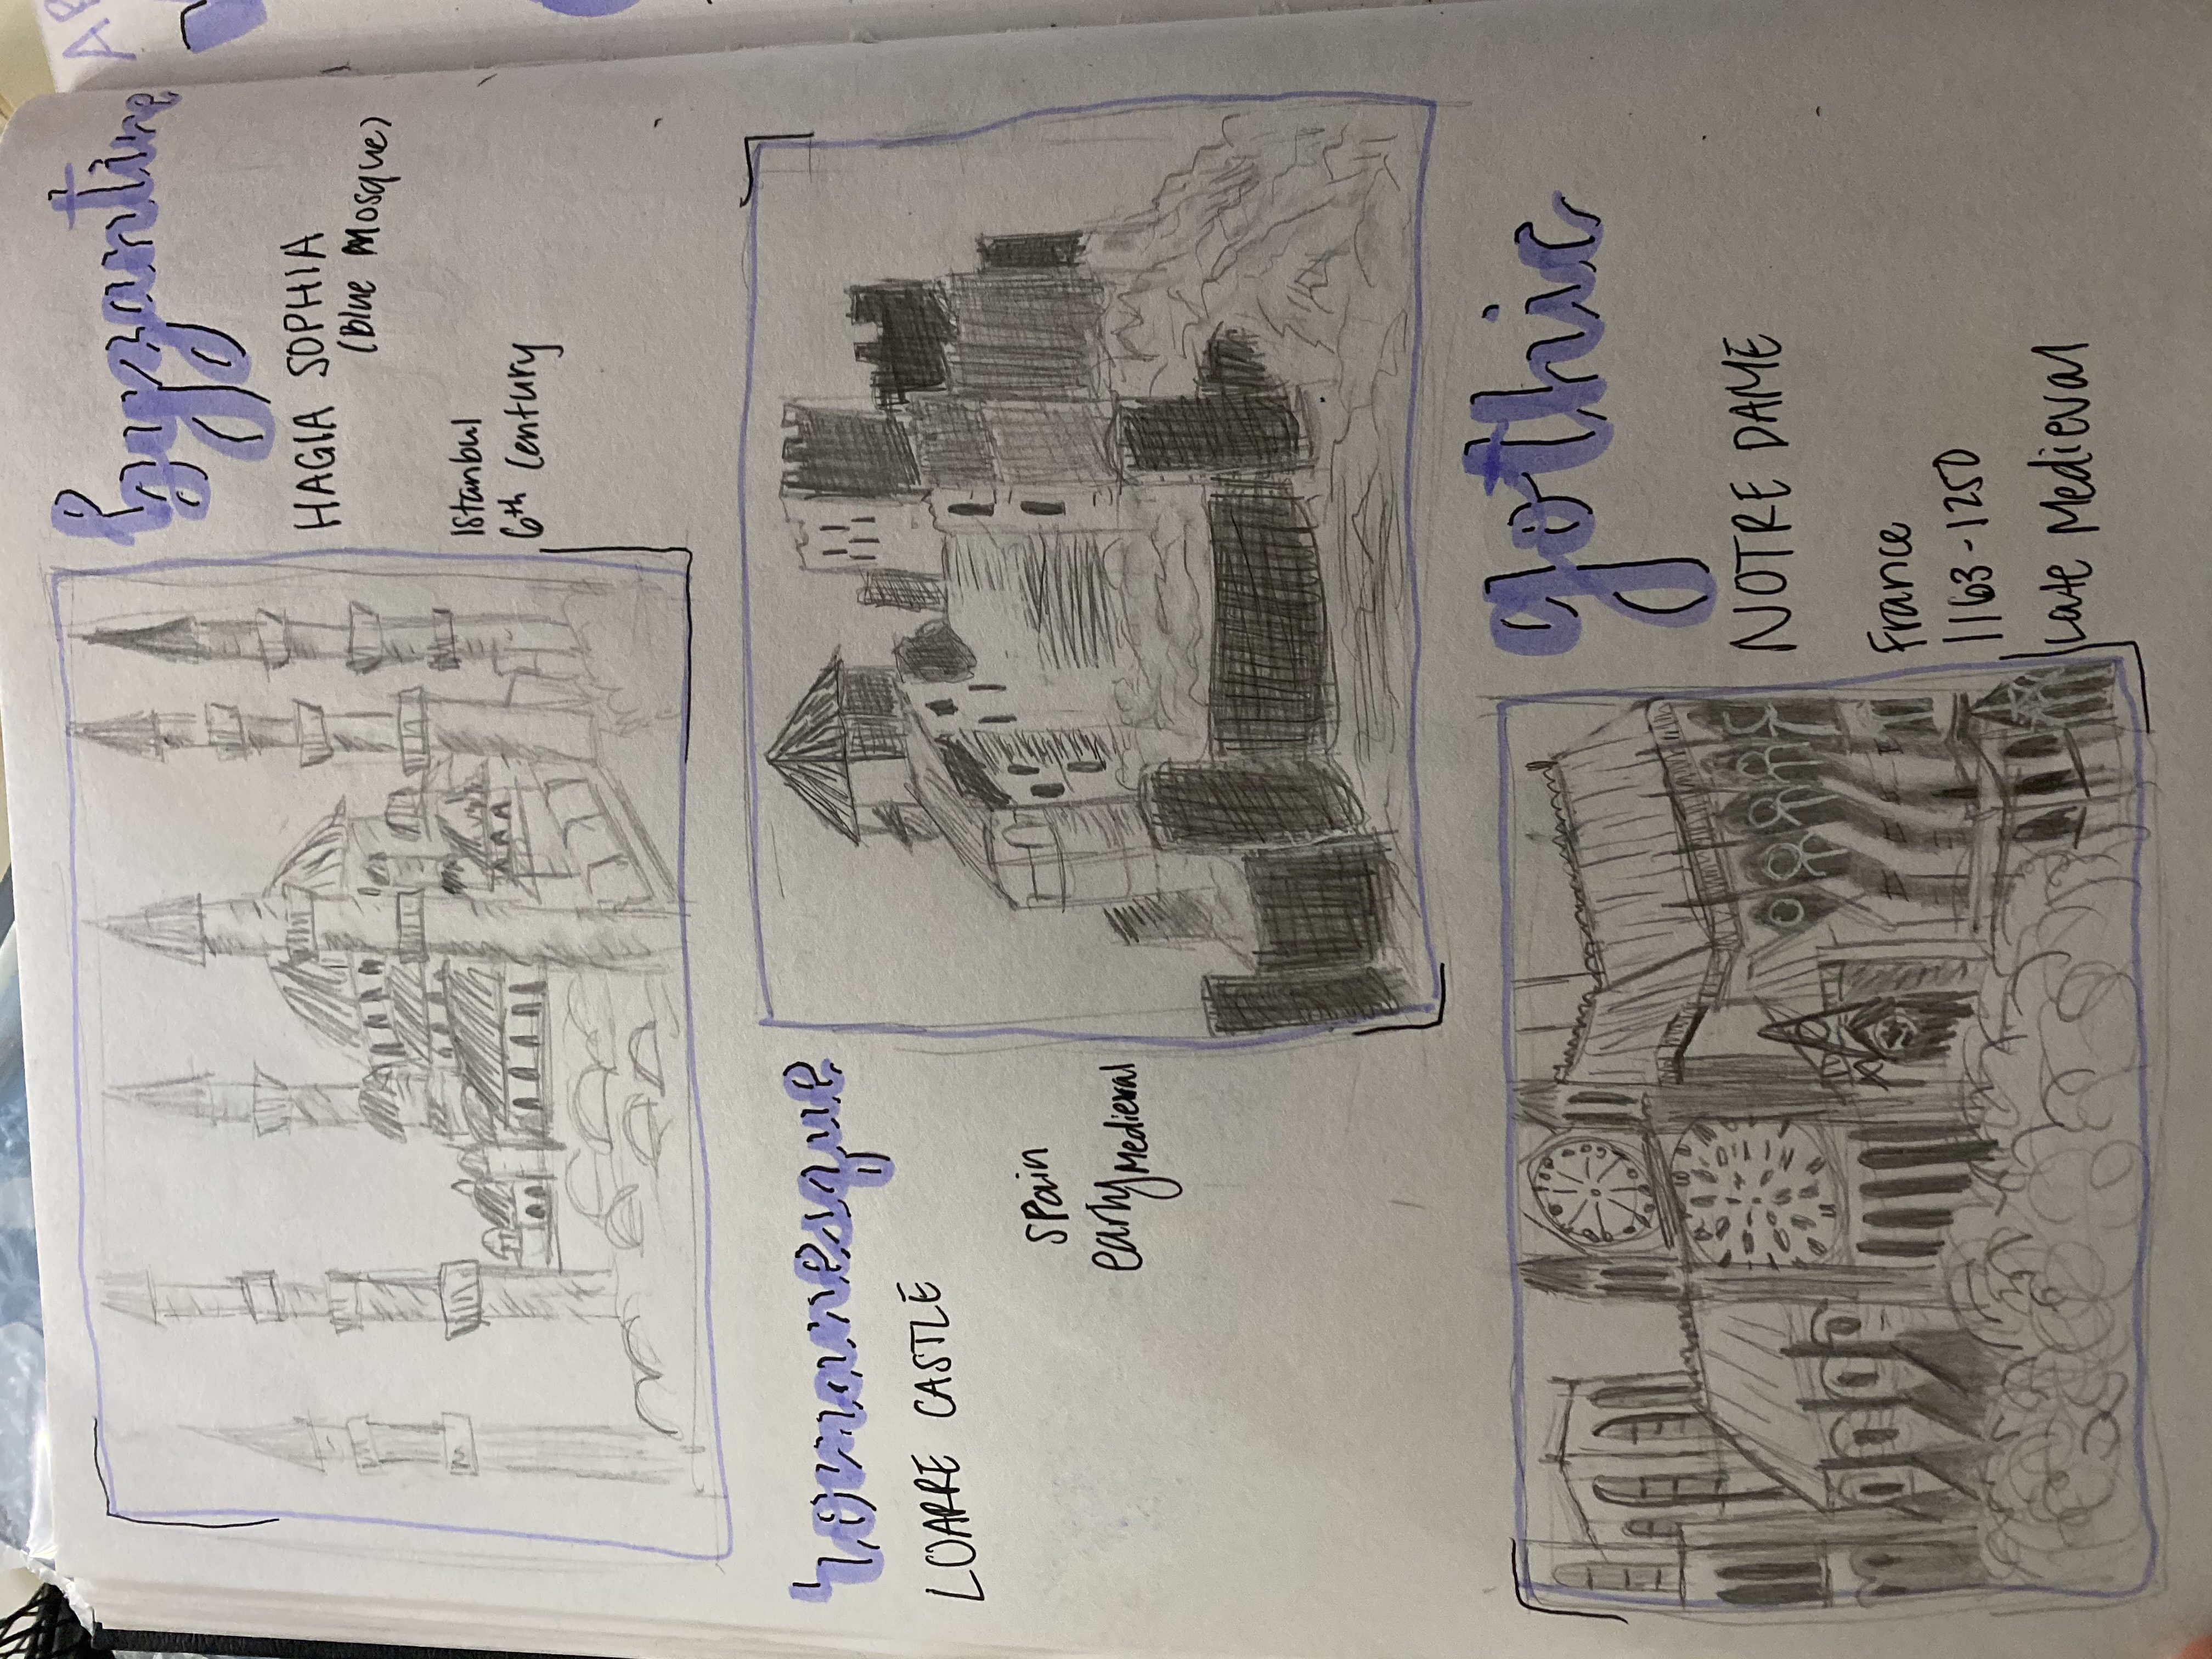 byzantine
HAGIA SOPHIA
(Blue Mosque)
Istanbul
6th Century
romanesque
LOARRE CASTLE
Spain
early Medieval
gothic
NOTRE DAME
France
1163-1250
Late Medieval